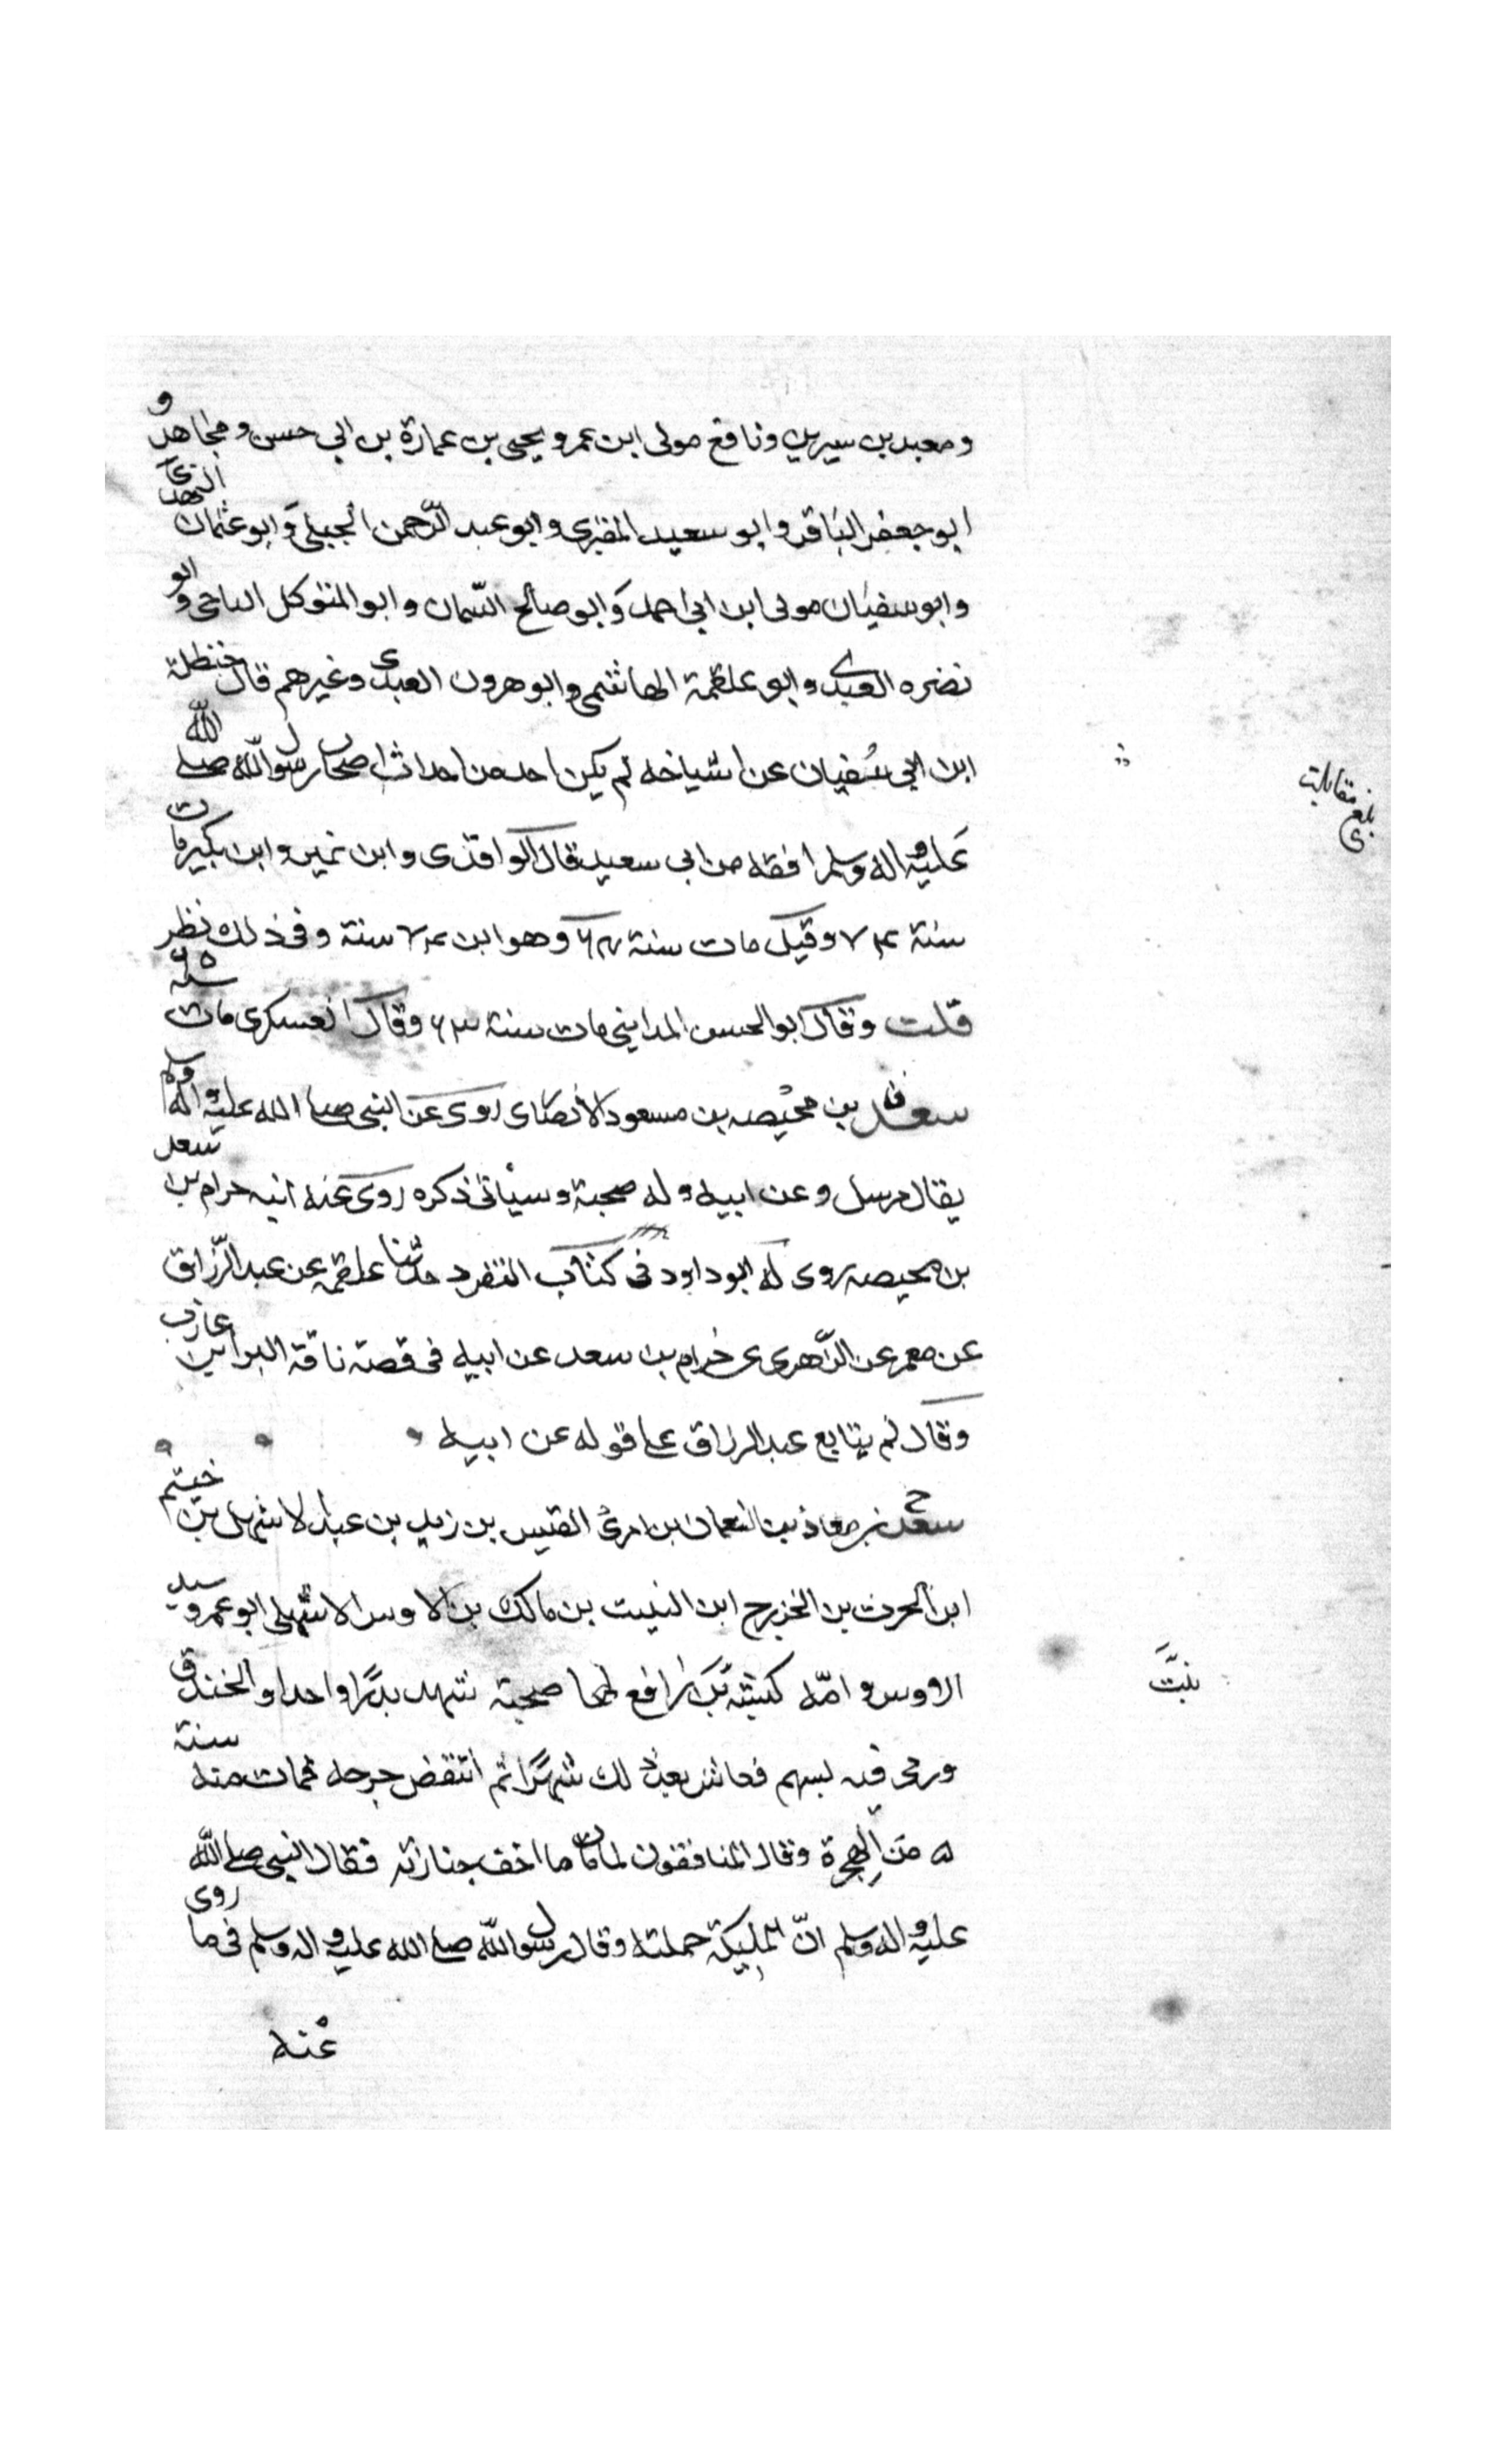 ومعبد بن سيرين ونافع مولى ابن عمر ويحيى بن عمارة بن ابي حسن ومجاهد و
ابو جعفر الباقر وابو سعيد المقبرى وابو عبد الرّحمن الجبلي وابو عثمان النهدى
وابو سفيان مولى ابن ابى احمد وابو صالح السّمان وابو المتوكل الناجى وابو
نضره العبدى وابو علقمة الهاشمى وابو هرون العبدى وغيرهم قال حنظلة
ابن ابي سُفيان عن اشياخه لم يكن احد من احداث اصحاب رسول الله صلى الله
عليه واله وسلم افقه من ابى سعيد قال الواقدى وابن نمير وابن بكير مات
سنة ۷۴ وقيل مات سنة ۶۴ وهو ابن ۷۴ سنة وفى ذلك نظر
قلت وقال ابو الحسن المدايني مات سنة ۶۳ وقال العسكرى مات سنة ۶۵
سعد بن محيصه بن مسعود الانصارى روى عن النبى صلى الله عليه واله وسلم
يقال مرسل وعن ابيه وله صحبة وسيأتى ذكره روى عنه ابنه حرام بن سعد
بن محيصه روى له ابو داود فى كتاب التفرد حدثنا علقمه عن عبد الرّزاق
عن معمر عن الزّهرى عن حرام بن سعد عن ابيه فى قصة ناقة البرا بن عازب
وقال لم يتابع عبد الرزاق على قوله عن ابيه
سعد بن معاذ بن النعمان بن امرئ القيس بن زيد بن عبد الاشهل بن خيثم
ابن الحرث بن الخزرج ابن النبيت بن مالك بن الاوس الاشهلى ابو عمرو سيد
الاوس وامّه كبشة بنت رافع لها صحبة شهد بدرًا واحدا والخندق
ورمى فيه بسهم فعاش بعد ذلك شهرًا ثم انتقض جرحه فمات منه سنة
۵ من الهجرة وقال المنافقون لما مات ما اخف جنازته فقال النبي صلى الله
عليه واله وسلم انّ الملٰيكة حملته وقال رسول الله صلى الله عليه واله وسلم فى ما روى
عنه
بلغ مقابلة
بنت